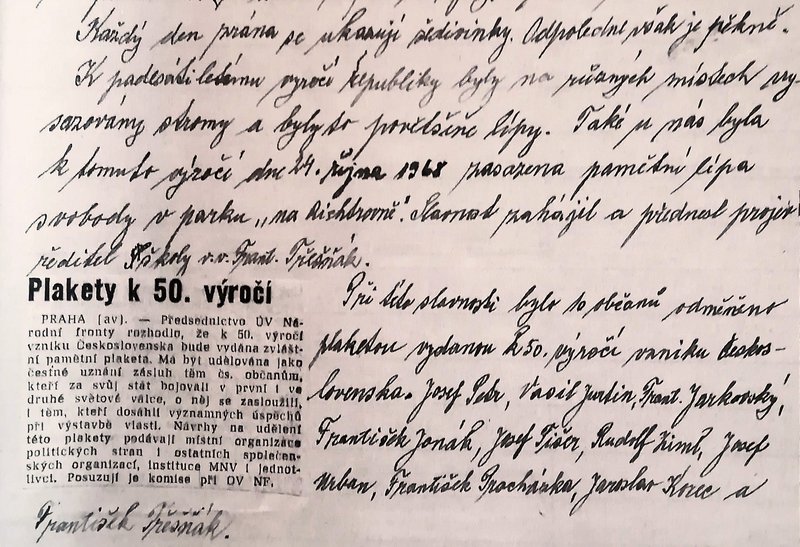 Každý den zrána se ukazují šedivinky. Odpoledne však je pěkně.
K padesátiletému výročí republiky byly na různých místech vy-
sazovány stromy a byly to povětšině lípy. Také u nás byla
k tomuto výročí dne 24. října 1968 zasazena pamětní lípa
svobody v parku „na Richtrovně“. Slavnost zahájil a přednesl projev
ředitel školy v.v. Frant. Třešňák.
Plakety k 50. výročí
PRAHA (av). — Předsednictvo ÚV Ná-
rodní fronty rozhodlo, že k 50. výročí
vzniku Československa bude vydána zvlášt-
ní pamětní plaketa. Má být udělována jako
čestné uznání zásluh těm čs. občanům,
kteří za svůj stát bojovali v první i ve
druhé světové válce, o něj se zasloužili,
i těm, kteří dosáhli významných úspěchů
při výstavbě vlasti. Návrhy na udělení
této plakety podávají místní organizace
politických stran i ostatních společen-
ských organizací, instituce MNV i jednot-
livci. Posuzují je komise při OV NF.
Při této slavnosti bylo 10 občanů odměněno
plaketou vydanou k 50. výročí vzniku Česko-
slovenska. Josef Petr, Vasil Jurtin, Frant. Jarkovský,
František Jonák, Josef Fišer, Rudolf Kiml, Josef
Urban, František Procházka, Jaroslav Korec a
František Třešňák.